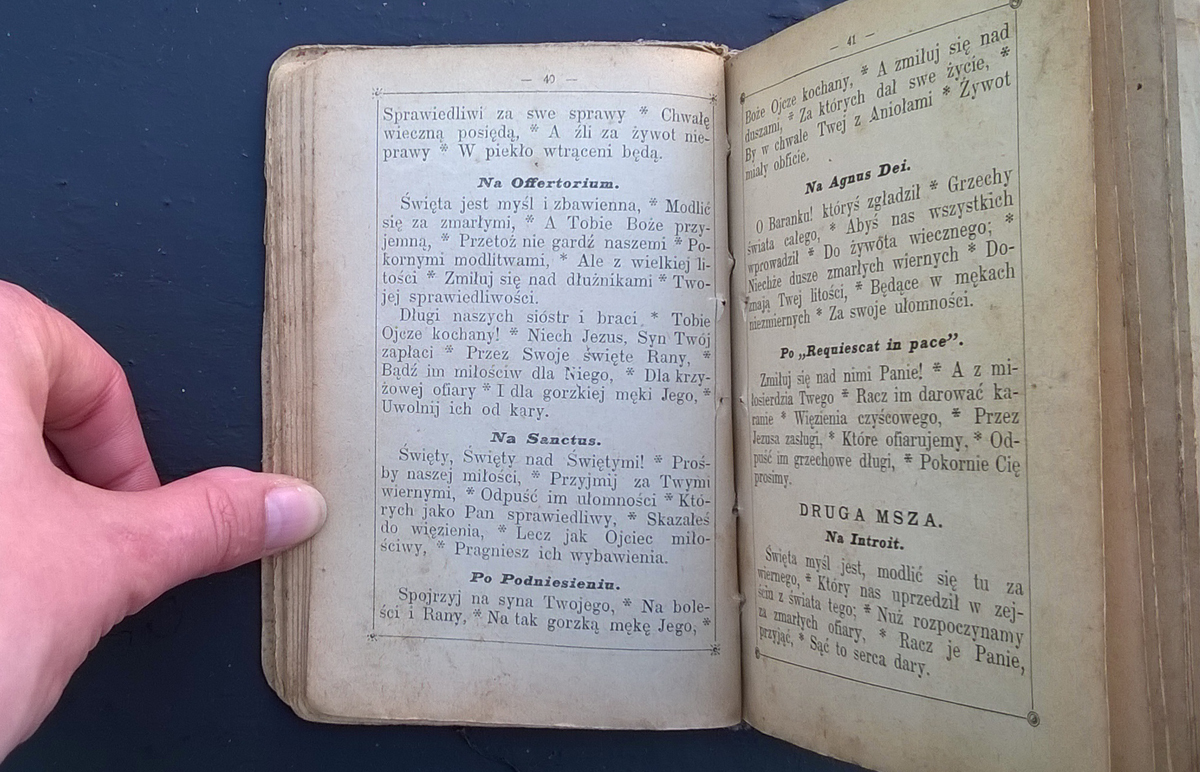 — 40 —
Sprawiedliwi za swe sprawy * Chwałę
wieczną posiędą, * A źli za żywot nie-
prawy * W piekło wtrąceni będą.
Na Offertorium.
Święta jest myśl i zbawienna, * Modlić
się za zmarłymi, * A Tobie Boże przy-
jemną, * Przetoż nie gardź naszemi * Po-
kornymi modlitwami, * Ale z wielkiej li-
tości * Zmiłuj się nad dłużnikami * Two-
jej sprawiedliwości.
Długi naszych sióstr i braci * Tobie
Ojcze kochany! * Niech Jezus, Syn Twój
zapłaci * Przez Swoje święte Rany, *
Bądź im miłościw dla Niego, * Dla krzy-
żowej ofiary * I dla gorzkiej męki Jego, *
Uwolnij ich od kary.
Na Sanctus.
Święty, Święty nad Świętymi! * Proś-
by naszej miłości, * Przyjmij za Twymi
wiernymi, * Odpuść im ułomności * Któ-
rych jako Pan sprawiedliwy, * Skazałeś
do więzienia, * Lecz jak Ojciec miło-
ściwy, * Pragniesz ich wybawienia.
Po Podniesieniu.
Spojrzyj na syna Twojego, * Na bole-
ści i Rany, * Na tak gorzką mękę Jego, *
— 41 —
Boże Ojcze kochany, * A zmiłuj się nad
duszami, * Za których dał swe życie, *
By w chwale Twej z Aniołami * Żywot
miały obficie.
Na Agnus Dei.
O Baranku! któryś zgładził * Grzechy
świata całego, * Abyś nas wszystkich
wprowadził * Do żywota wiecznego; *
Niechże dusze zmarłych wiernych * Do-
znają Twej litości, * Będące w mękach
niezmiernych * Za swoje ułomności.
Po „Requiescat in pace”.
Zmiłuj się nad nimi Panie! * A z mi-
łosierdzia Twego * Racz im darować ka-
ranie * Więzienia czyścowego, * Przez
Jezusa zasługi, * Które ofiarujemy, * Od-
puść im grzechowe długi, * Pokornie Cię
prosimy.
DRUGA MSZA.
Na Introit.
Święta myśl jest, modlić się tu za
wiernego, * Który nas uprzedził w zej-
ściu z świata tego; * Nuż rozpoczynamy
za zmarłych ofiary, * Racz je Panie,
przyjąć, * Sąć to serca dary.